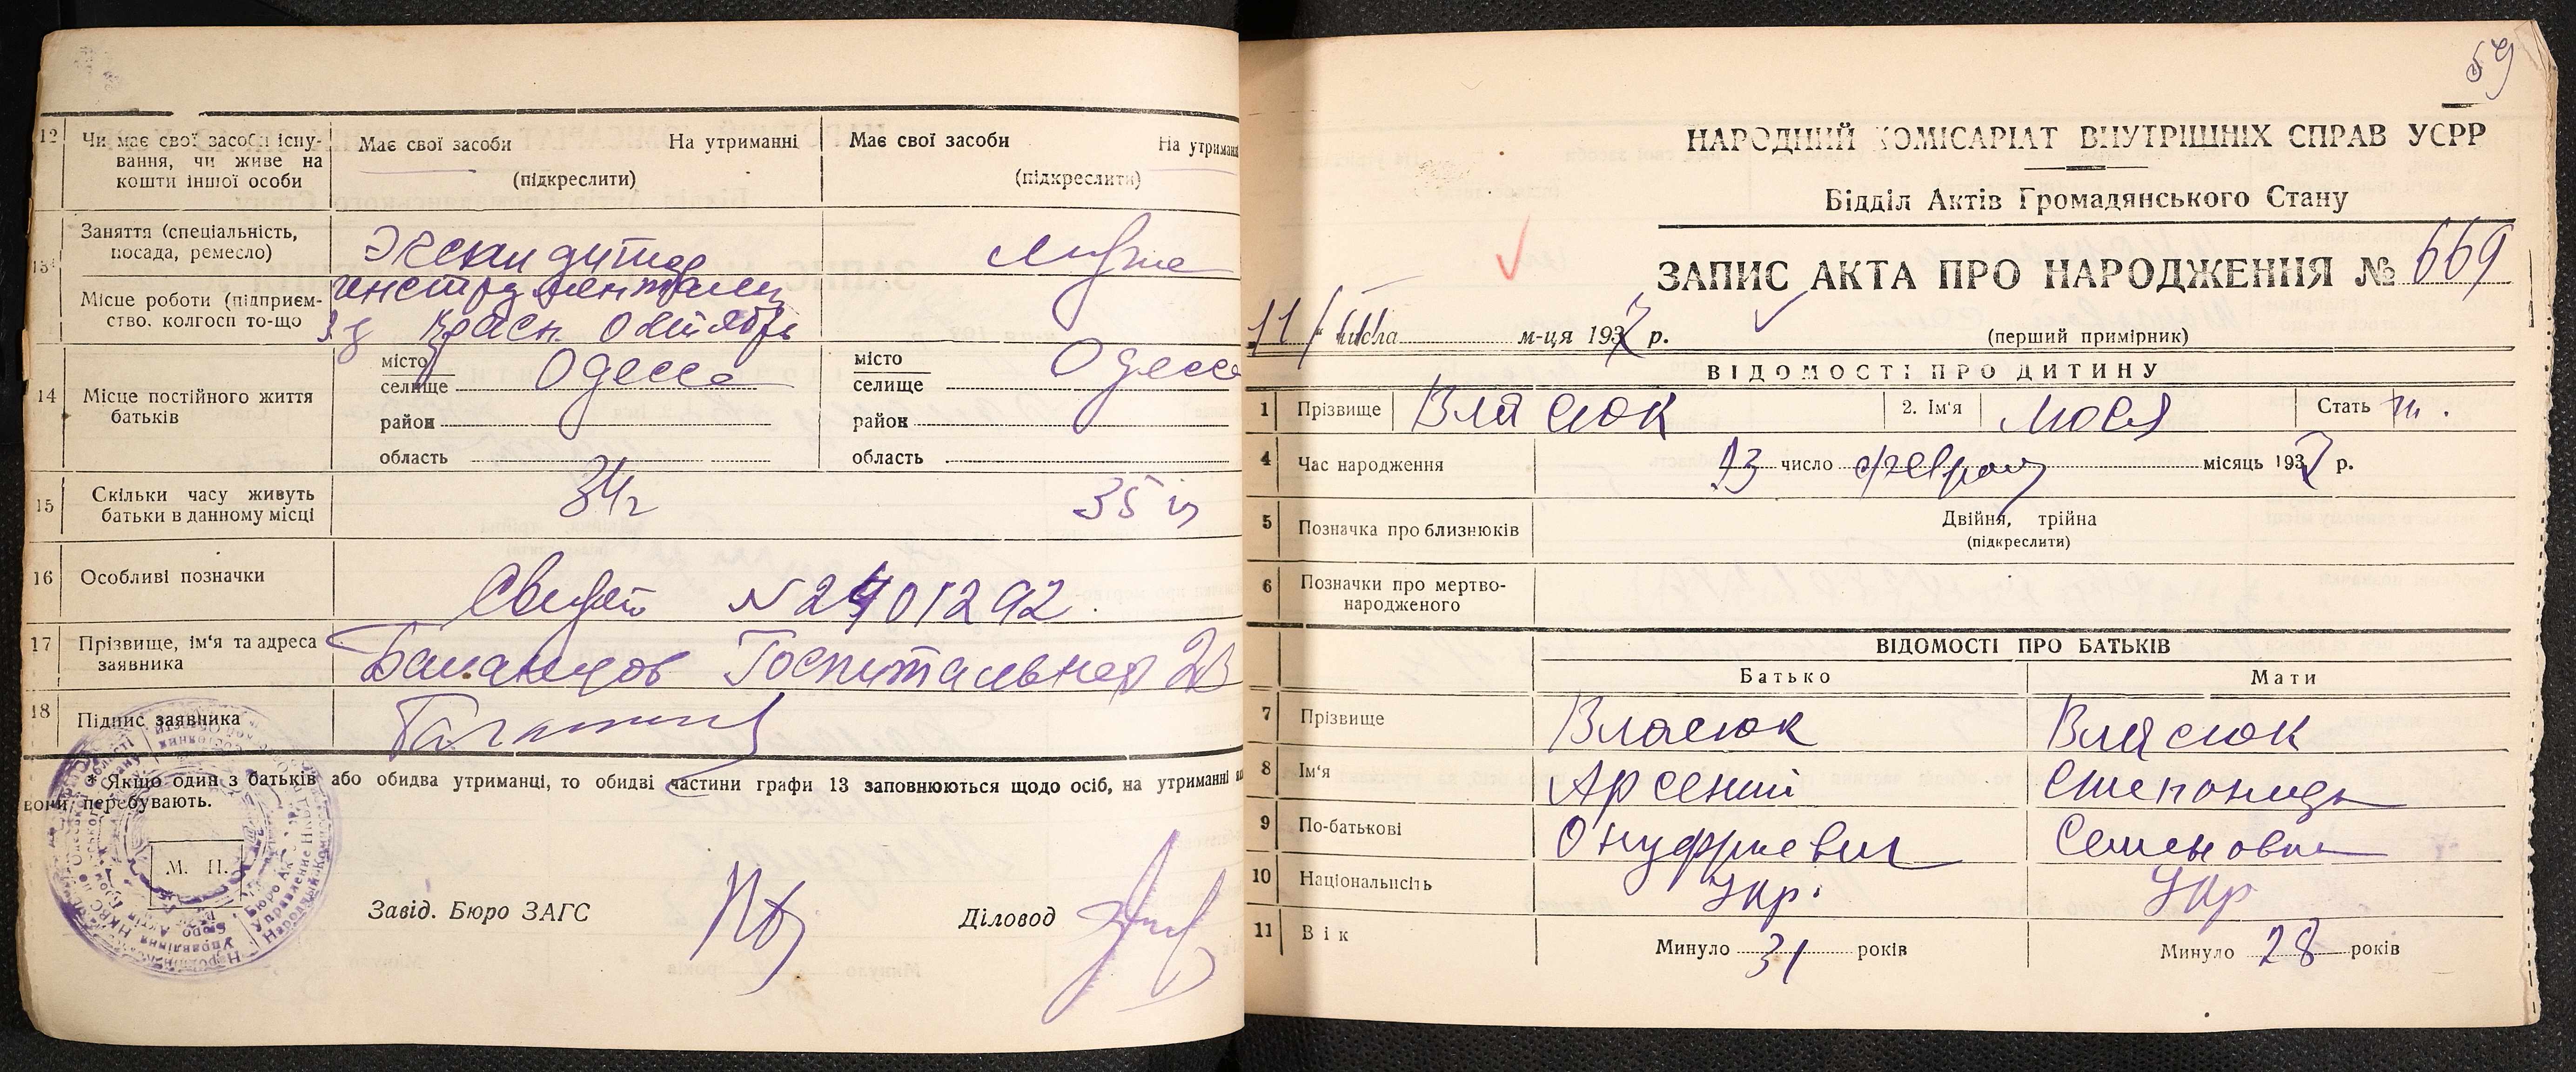 12 Чи має свої засоби існу-
вання, чи живе на
кошти іншої особи
Має свої засоби На утриманні
(підкреслити)
Має свої засоби На утриман
(підкреслити)
13* Заняття (спеціальність,
посада, ремесло)
Экспедитор
Місце роботи (підприєм-
ство, колгосп то-що
инструментальн
з-д Красн. Октябрь
14 Місце постійного життя
батьків
місто
селище Одесса
район
область
місто
селище Одесса
район
область
15 Скільки часу живуть
батьки в данному місці
34г
35
16 Особливі позначки
N 2401292
17 Прізвище, ім'я та адреса
заявника
Госпитальная
18 Підпис заявника
* Якщо один з батьків або обидва утриманці, то обидві частини графи 13 заповнюються щодо осіб, на утриманні
вони перебувають.
М. П.
Завід. Бюро ЗАГС
Діловод
59
НАРОДНИЙ КОМІСАРІАТ ВНУТРІШНІХ СПРАВ УСРР
Відділ Актів Громадянського Стану
ЗАПИС АКТА ПРО НАРОДЖЕННЯ № 669
11 числа м-ця 1937 р.
(перший примірник)
ВІДОМОСТІ ПРО ДИТИНУ
1 Прізвище Власюк 2. Ім'я Люся Стать
4 Час народження 13 число февраля місяць 1937 р.
5 Позначка про близнюків
Двійня, трійна
(підкреслити)
6 Позначки про мертво-
народженого
ВІДОМОСТІ ПРО БАТЬКІВ
Батько Мати
7 Прізвище Власюк Власюк
8 Ім'я Арсений Степанида
9 По-батькові Онуфриевич Семеновна
10 Національність Укр. Укр
11 Вік Минуло 31 років Минуло 28 років